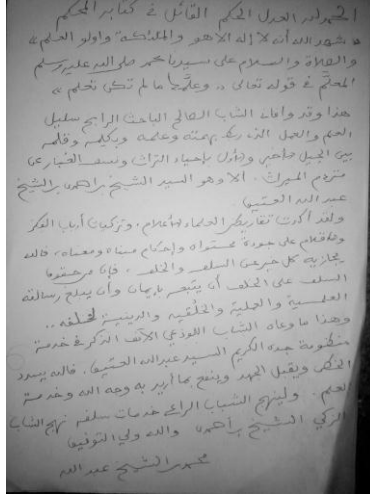 الحمد لله العدل الحكيم القائل في كتابه المحكم
« شهد الله أنه لا إله إلا هو والملائكة وأولو العلم »
والصلاة والسلام على سيدنا محمد صلى الله عليه وسلم
المعلَّم في قوله تعالى .. « وعلَّمك ما لم تكن تعلم »
هذا وقد وافانا الشاب الصالح الباحث الرابح سليل
العلم والعمل الذي ربط بهمته وعلمه وقلمه
بين الجيل بإحياء التراث الغبار عن
الميراث . ألا وهو السيد الشيخ براهيم بن الشيخ
عبد الله
ولقد أكدت تقاريظ العلماء الأعلام ، وتزكيات أرباب الفكر
على جودة محتواه وإحكام مبناه ومعناه ، فالله
يجازيه كل خير عن السلف والخلف . فإن من حقوق
السلف على الخلف أن يتبعه بإيمان وأن يبلغ رسالته
العلمية والعملية والخلقية والدينية لخلفه ..
وهذا ما وعاه الشاب اللوذعي الآنف الذكر في خدمة
منظومة جده الكريم السيد عبد الله . فالله يسدد
الخطى ويقبل الجهد وينفع بما أريد به وجه الله وخدمة
العلم . ولينهج الشباب الراعي خدمات سلفه نهج الشاب
الزكي الشيخ براهيم والله ولي التوفيق
محمد الشيخ عبد الله